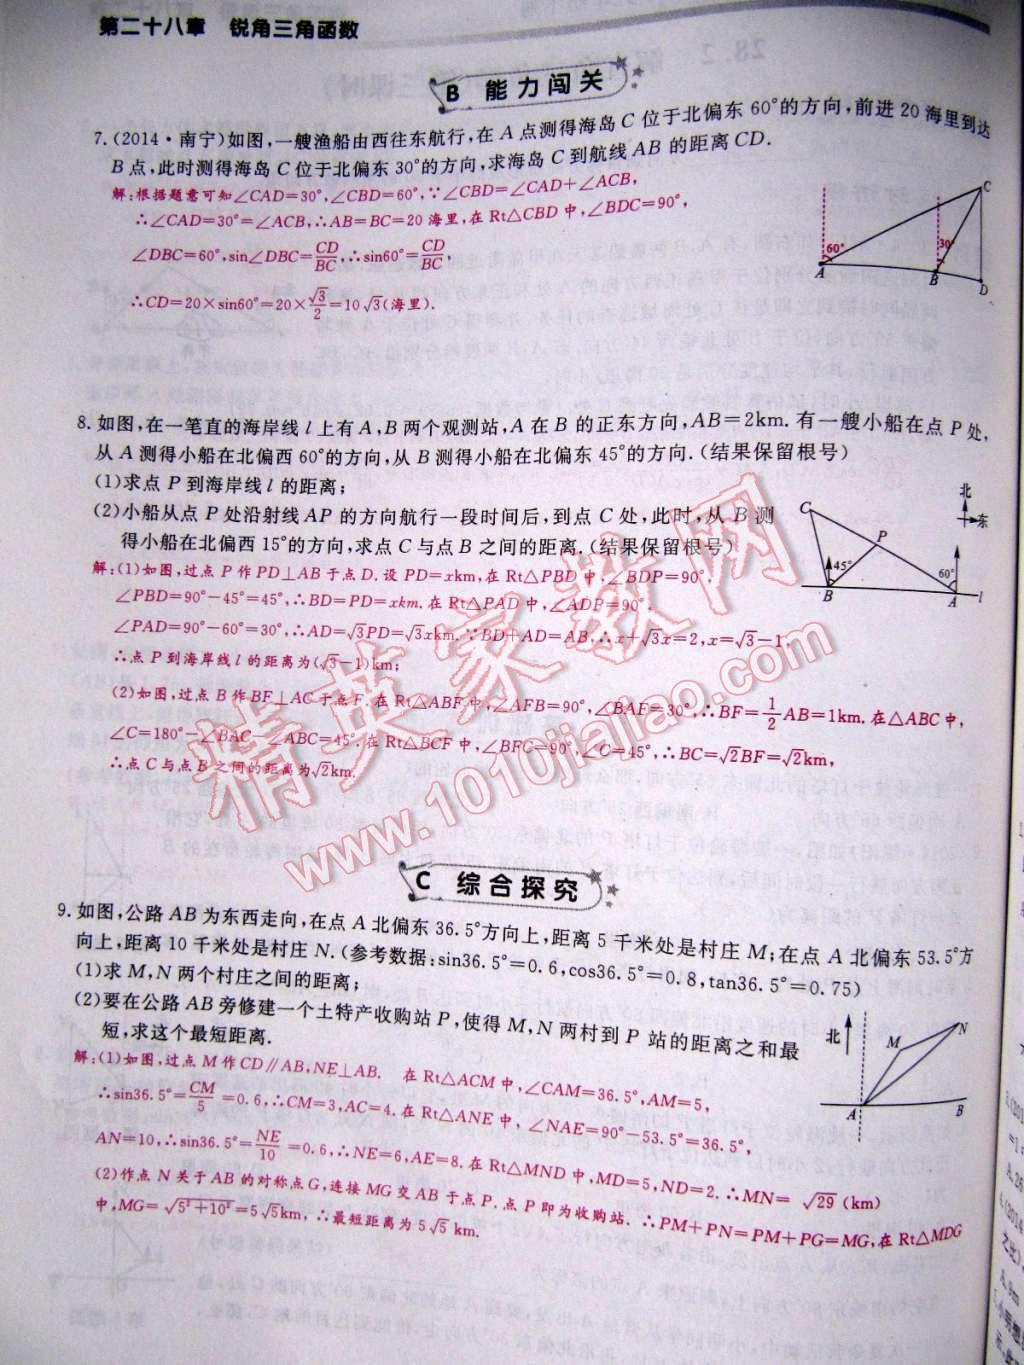 第二十八章 锐角三角函数
B 能力闯关
7.(2014·南宁)如图,一艘渔船由西往东航行,在 A 点测得海岛 C 位于北偏东 60°的方向,前进 20 海里到达
B 点,此时测得海岛 C 位于北偏东 30°的方向,求海岛 C 到航线 AB 的距离 CD.
解:根据题意可知∠CAD=30°,∠CBD=60°,∵∠CBD=∠CAD+∠ACB,
∴∠CAD=30°=∠ACB,∴AB=BC=20 海里,在 Rt△CBD 中,∠BDC=90°,
∠DBC=60°,sin∠DBC=CD/BC,∴sin60°=CD/BC,
∴CD=20×sin60°=20×√3/2=10√3(海里).
C
60°
30°
A
B
D
8.如图,在一笔直的海岸线 l 上有 A,B 两个观测站,A 在 B 的正东方向,AB=2km.有一艘小船在点 P 处,
从 A 测得小船在北偏西 60°的方向,从 B 测得小船在北偏东 45°的方向.(结果保留根号)
(1)求点 P 到海岸线 l 的距离;
(2)小船从点 P 处沿射线 AP 的方向航行一段时间后,到点 C 处,此时,从 B 测
得小船在北偏西 15°的方向,求点 C 与点 B 之间的距离.(结果保留根号)
北
东
C
P
45°
60°
B
A
l
解:(1)如图,过点 P 作 PD⊥AB 于点 D.设 PD=xkm,在 Rt△PBD 中,∠BDP=90°,
∠PBD=90°-45°=45°,∴BD=PD=xkm.在 Rt△PAD 中,∠ADP=90°,
∠PAD=90°-60°=30°,∴AD=√3PD=√3xkm.∵BD+AD=AB,∴x+√3x=2,x=√3-1,
∴点 P 到海岸线 l 的距离为(√3-1)km;
(2)如图,过点 B 作 BF⊥AC 于点 F.在 Rt△ABF 中,∠AFB=90°,∠BAF=30°,∴BF=1/2AB=1km.在△ABC 中,
∠C=180°-∠BAC-∠ABC=45°.在 Rt△BCF 中,∠BFC=90°,∠C=45°,∴BC=√2BF=√2km,
∴点 C 与点 B 之间的距离为√2km.
精英家教网
www.1010jiajiao.com
C 综合探究
9.如图,公路 AB 为东西走向,在点 A 北偏东 36.5°方向上,距离 5 千米处是村庄 M;在点 A 北偏东 53.5°方
向上,距离 10 千米处是村庄 N.(参考数据:sin36.5°=0.6,cos36.5°=0.8,tan36.5°=0.75)
(1)求 M,N 两个村庄之间的距离;
(2)要在公路 AB 旁修建一个土特产收购站 P,使得 M,N 两村到 P 站的距离之和最
短,求这个最短距离.
北
M
N
A
B
解:(1)如图,过点 M 作 CD∥AB,NE⊥AB. 在 Rt△ACM 中,∠CAM=36.5°,AM=5,
∴sin36.5°=CM/5=0.6,∴CM=3,AC=4.在 Rt△ANE 中,∠NAE=90°-53.5°=36.5°,
AN=10,∴sin36.5°=NE/10=0.6,∴NE=6,AE=8.在 Rt△MND 中,MD=5,ND=2.∴MN=√29(km)
(2)作点 N 关于 AB 的对称点 G,连接 MG 交 AB 于点 P.点 P 即为收购站.∴PM+PN=PM+PG=MG,在 Rt△MDG
中,MG=√5²+10²=5√5km,∴最短距离为 5√5 km.